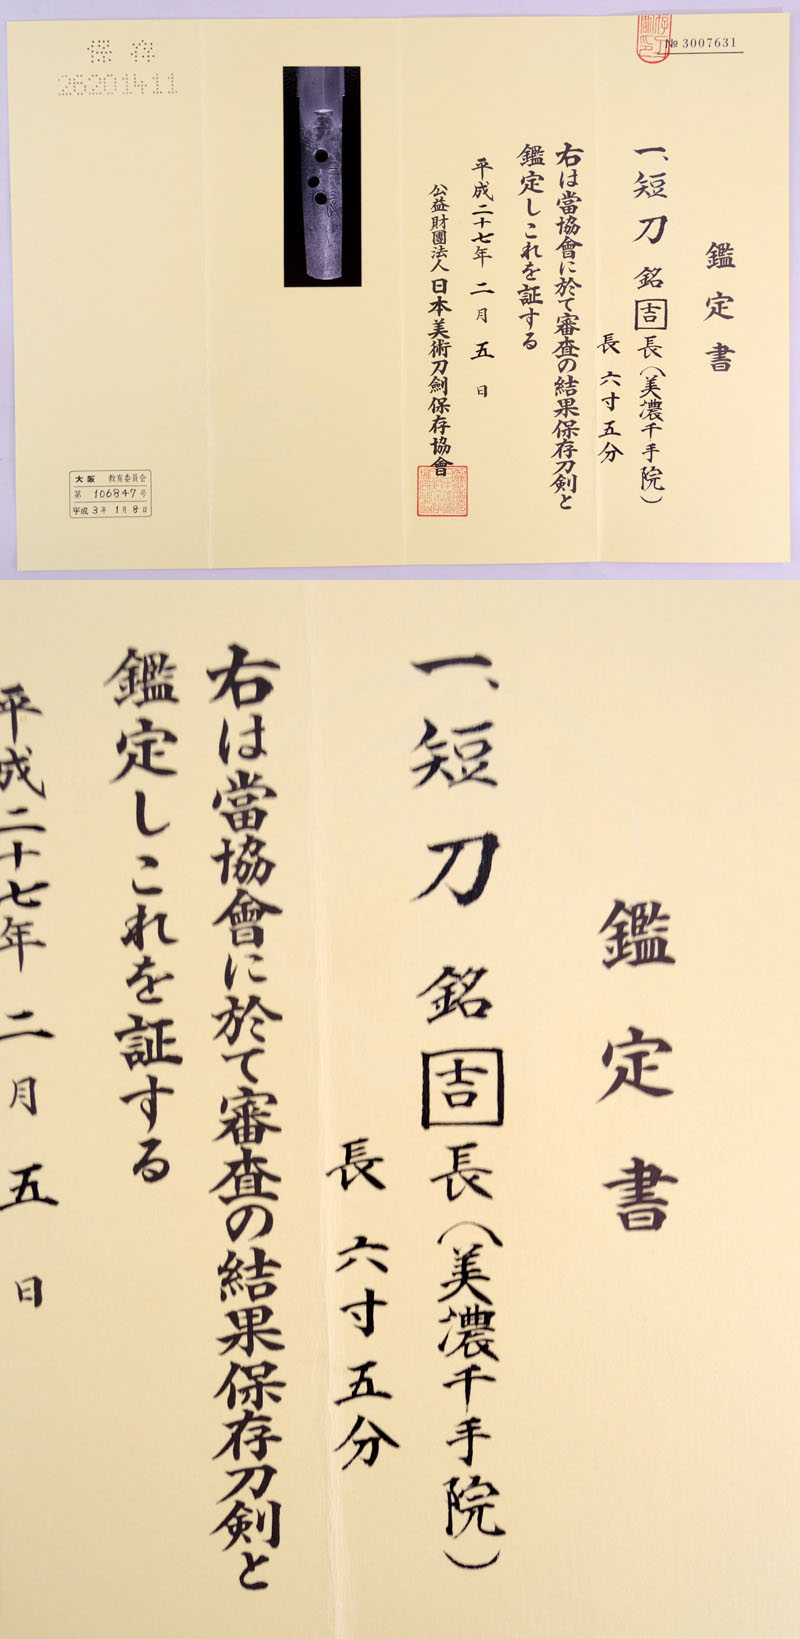 № 3007631
鑑定書
一、短刀 銘 吉長(美濃千手院)
長 六寸五分
右は當協會に於て審査の結果保存刀剣と
鑑定しこれを証する
平成二十七年 二月 五日
公益財團法人 日本美術刀劍保存協會
保存
26201411
大阪 教育委員会
第 106847 号
平成 3年 1月 8日
鑑定書
一、短刀 銘 吉長(美濃千手院)
長 六寸五分
右は當協會に於て審査の結果保存刀剣と
鑑定しこれを証する
平成二十七年 二月 五日